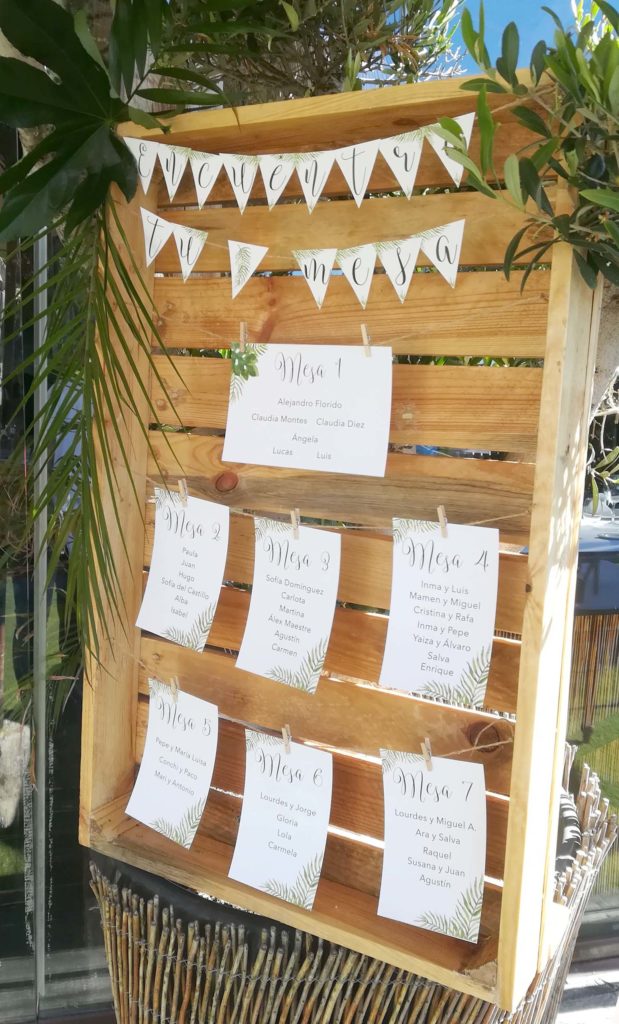 encuentra
tu mesa
Mesa 1
Alejandro Florido
Claudia Montes Claudia Diez
Ángela
Lucas Luis
Mesa 2
Paula
Juan
Hugo
Sofía del Castillo
Alba
Isabel
Mesa 3
Sofia Domínguez
Carlota
Martina
Alex Maestre
Agustín
Carmen
Mesa 4
Inma y Luis
Mamen y Miguel
Cristina y Rafa
Inma y Pepe
Yaiza y Álvaro
Salva
Enrique
Mesa 5
Pepe y María Luisa
Conchi y Paco
Mari y Antonio
Mesa 6
Lourdes y Jorge
Gloria
Lola
Carmela
Mesa 7
Lourdes y Miguel A.
Ara y Salva
Raquel
Susana y Juan
Agustín